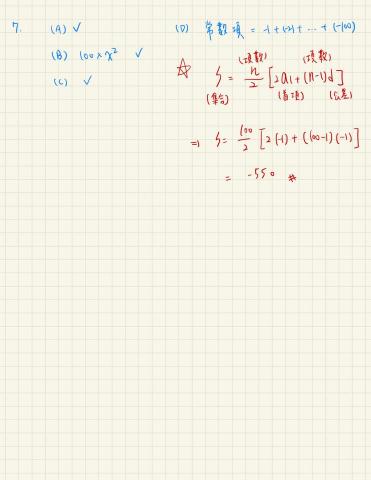 7. (A) ✓
(B) 100 × x² ✓
(C) ✓
(D) 常數項 = -1 + (-2) + ... + (-100)
☆ S = n/2 [2a₁ + (n-1)d]
(項數) (項數)
(集合) (首項) (公差)
⇒ S = 100/2 [2(-1) + (100-1)(-1)]
= -550 #